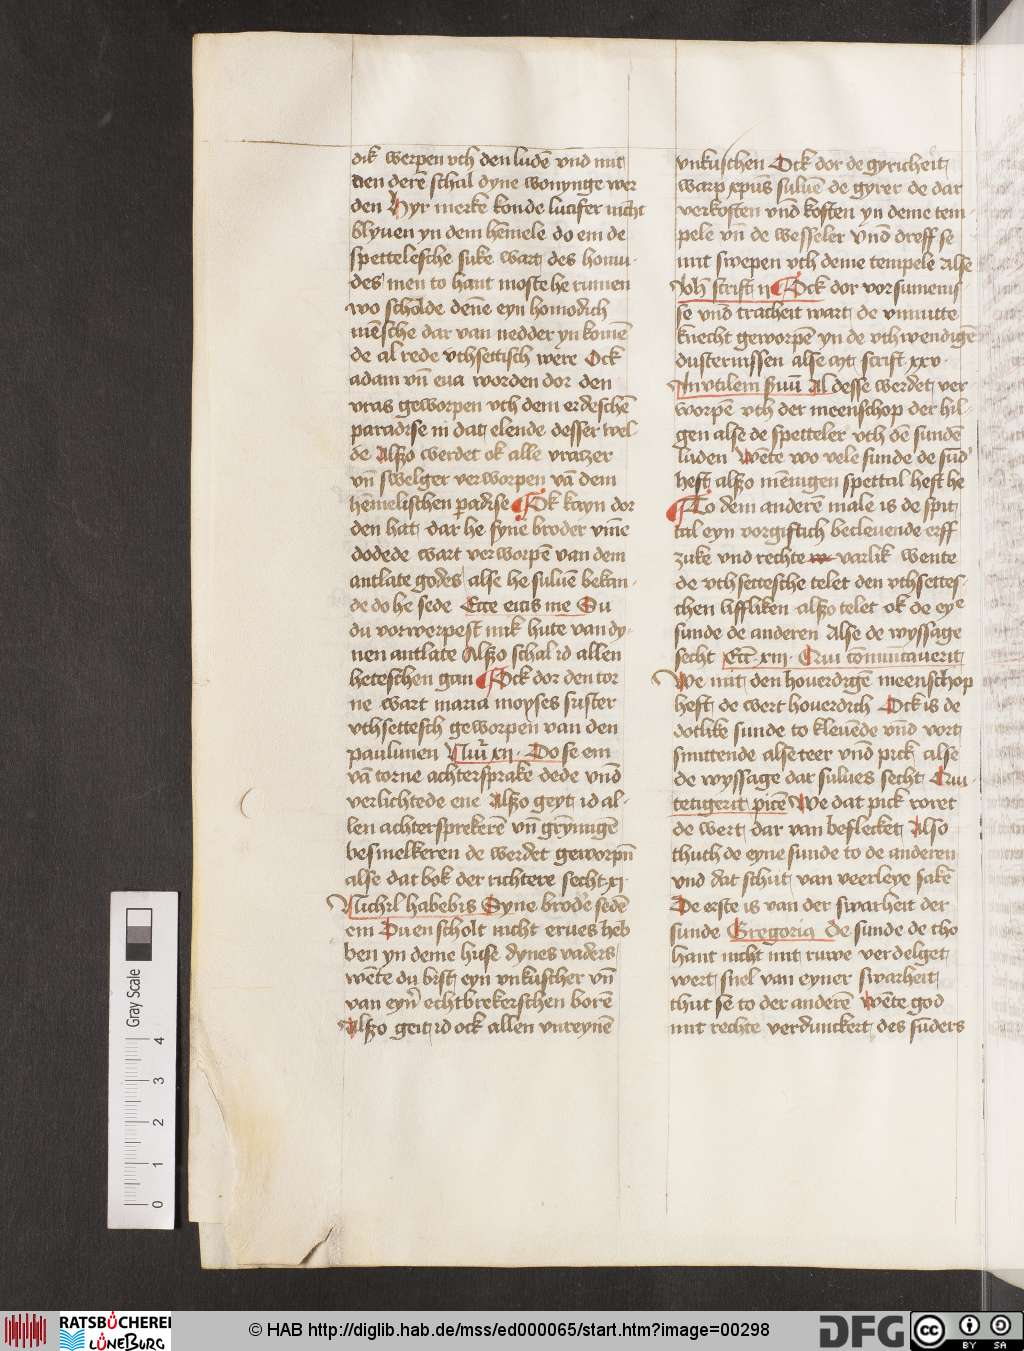 dik werpen vth den ludē vnd mit
den derē schal dyne wonynge wer
den Hyr merke konde lucifer nicht
blyuen yn dem hēmele do em de
spettelesche suke wart des homu-
des men to hant moste he rumen
wo scholde dēne eyn homodich
mēsche dar van nedder yn komē
de al rede vthsettisch were Ock
adam vn̄ eua worden dor den
vras geworpen vth dem erdeschē
paradise in dat elende desser wel-
de Alszo werdet ok alle vratzer
vn̄ swelger verworpen vā dem
hēmelischen padise Ok kayn dor
den hat dar he syne broder vm̄e
dodede wart verworpē van dem
antlate godes alse he suluē bekan-
de do he sede Ecce eicis me Su
du vorwerpest mik hute van dy-
nen antlate Alszo schal id allen
heteschen gan Ock dor den tor
ne wart maria moyses suster
vthsettesch geworpen van den
paulunen Nūi xii · Do se em
vā torne achtersprake dede vn̄d
verlichtede ene Alszo geyt id al-
len achtersprekerē vn̄ grynnigē
besmelkeren de werdet geworpn̄
alse dat bok der richtere secht xi
Nichil habebis Syne brode sedē
em Du en scholt nicht erues heb
ben yn deme huse dynes vaders
wēte du bist eyn vnkuscher vn̄
van eyn̄ echtbrekerschen borē
Alszo geit id ock allen vnreynē
vnkuschen Ock dor de gyricheit
warp xpūs suluē de gyrer de dar
verkoften vnd koften yn deme tem-
pele vn̄ de wesseler Vnd dreff se
mit swepen vth deme tempele Alse
Joh̄ scrift ij Ock dor vorsumenis-
se vnd tracheit wart de vnnutte
knecht geworpē yn de vthwendigē
dusternissen alse mt scrift xxv ·
Invtilem s̄uū Al desse werdet ver
worpē vth der meenschop der hil-
gen alse de spetteler vth dē sundē
luden Wēte wo vele sunde de sūd
heft alszo mēnigen spettal heft he
To dem anderē male is de spit
tal eyn vorgiftich becleuende erff
zuke vnd rechte varlik wente
de vthsettesche telet den vthsettes-
chen liffliken alszo telet ok de eyᵉ
sunde de anderen Alse de wyssage
secht Ecc̄ xiii · Qui cōmūicauerit
We mit den houerdigē meenschop
heft de wert houerdich Ock is de
dotlike sunde to kleuēde vnd vort
smittende alse teer vnd pick alse
de wyssage dar sulues secht Qui
tetigerit picē We dat pick roret
de wert dar van beflecket Also
thuth de eyne sunde to de anderen
vnd dat schut van veerleye sake
De erste is van der swarheit der
sunde Gregorius De sunde de tho
hant nicht mit ruwe verdelget
wert snel van eyner swarheit
thut se to der anderē Wēte god
mit rechte verduncket des sūders
Gray Scale
4
3
2
1
0
RATSBÜCHEREI
LÜNEBURG
© HAB http://diglib.hab.de/mss/ed000065/start.htm?image=00298
DFG
cc
BY SA